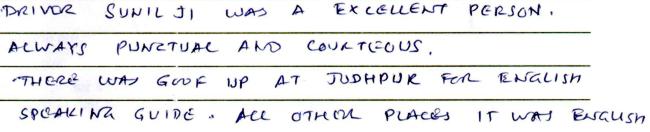 DRIVER SUNIL JI WAS A EXCELLENT PERSON.
ALWAYS PUNCTUAL AND COURTEOUS.
THERE WAS GOOF UP AT JUDHPUR FOR ENGLISH
SPEAKING GUIDE. ALL OTHER PLACES IT WAS ENGLISH